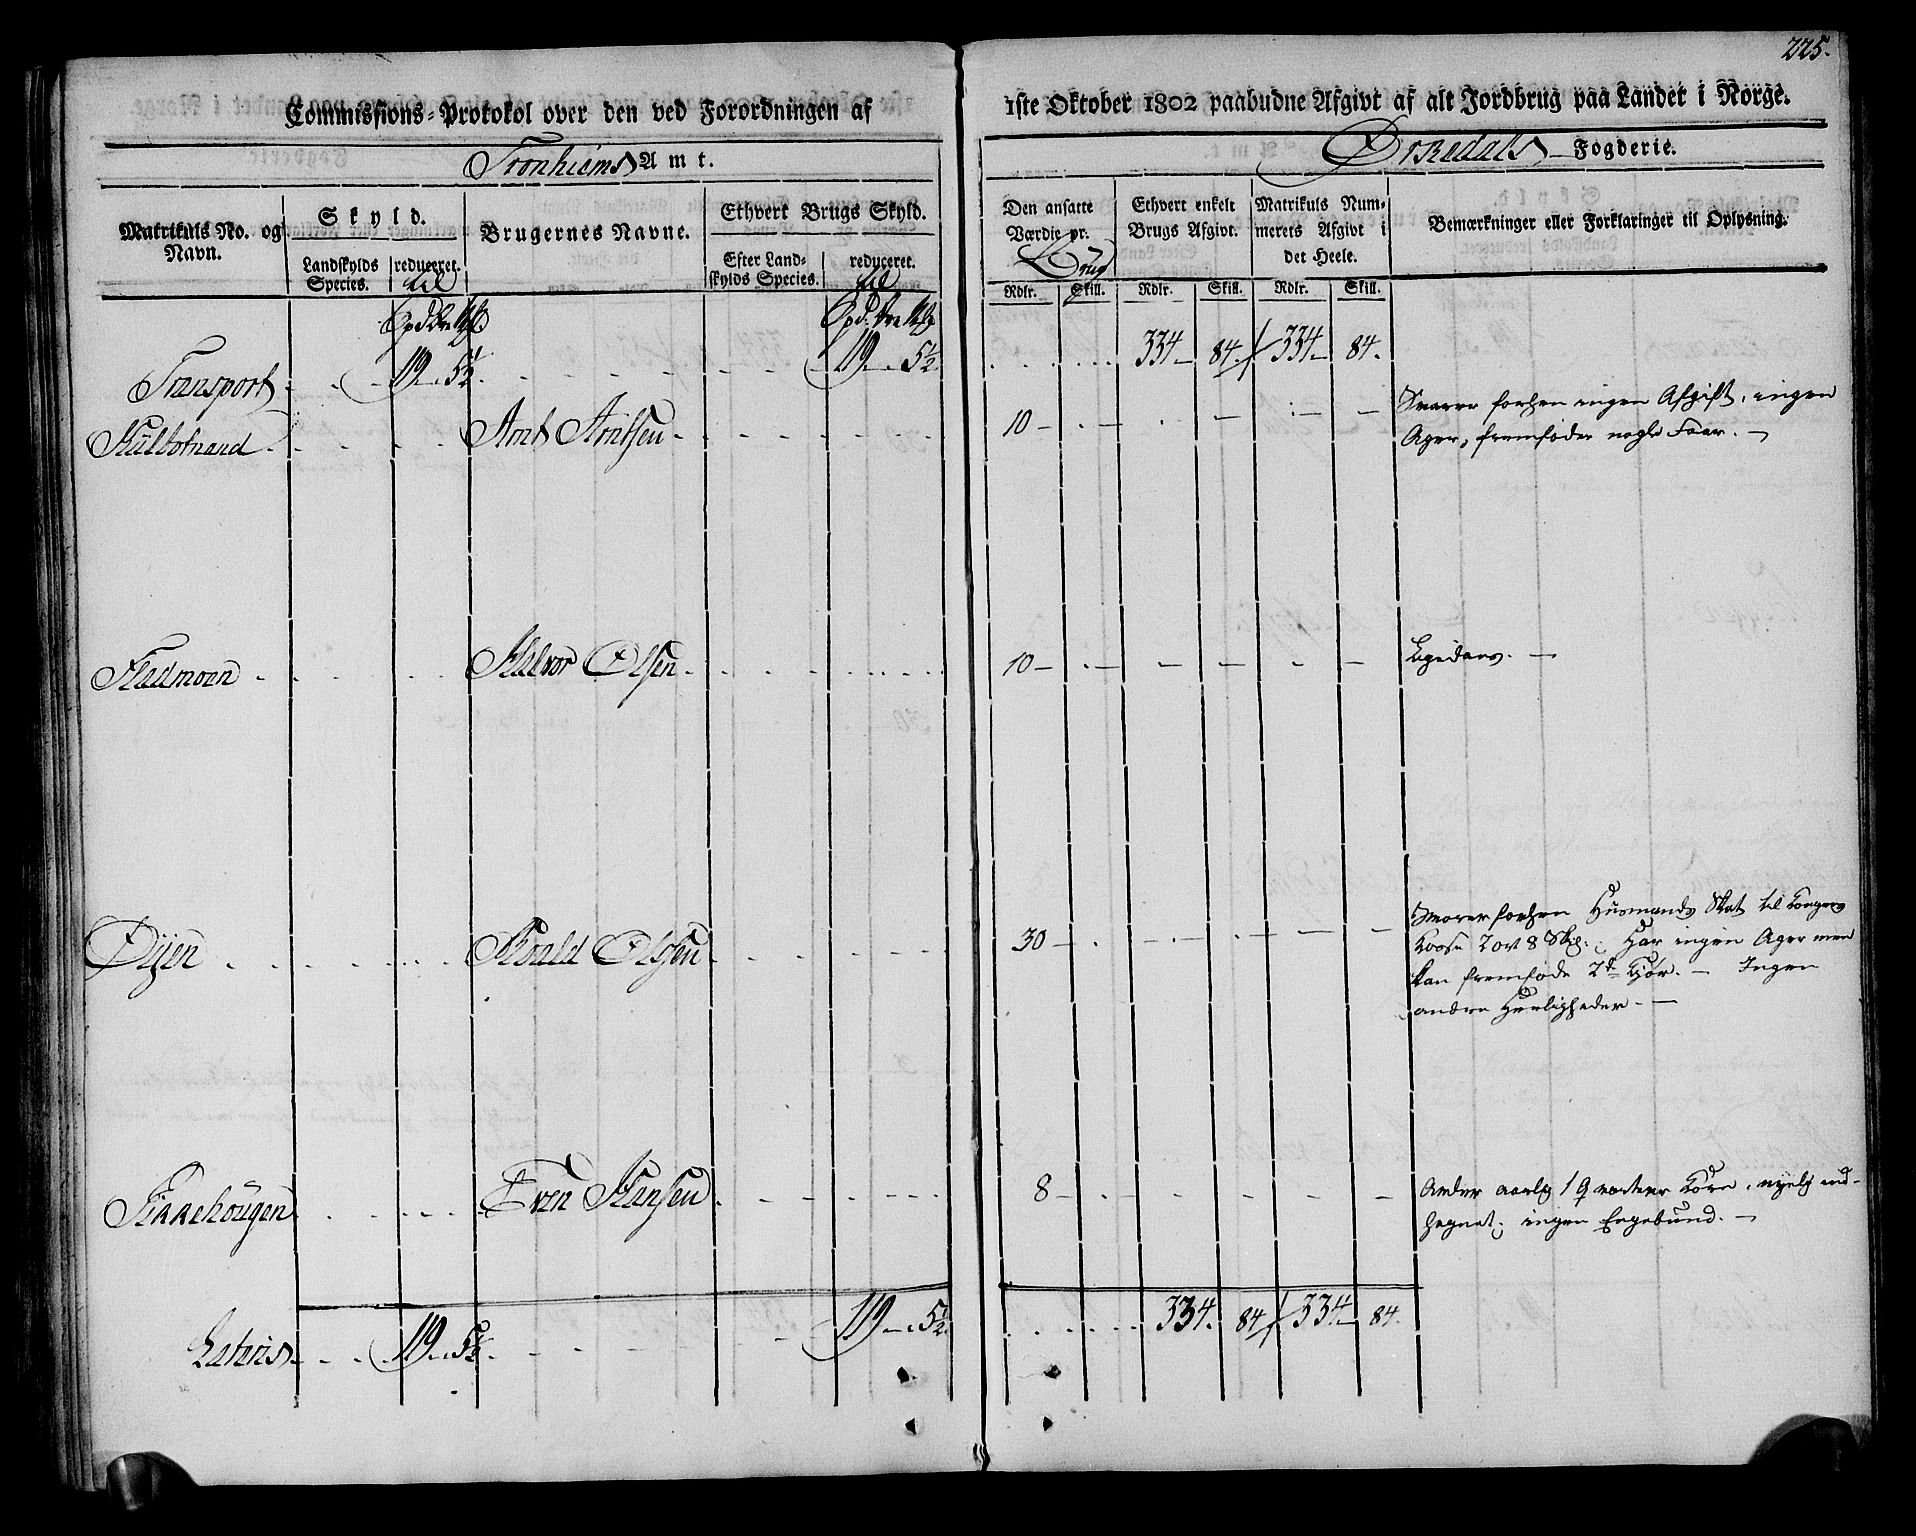 225.
Commissions-Protokol over den ved Forordningen af 1ste Oktober 1802 paabudne Afgivt af alt Jordbrug paa Landet i Norge.
Tronhiems Amt. Orkedals Fogderie.
Matrikuls No. og Navn.
Skyld.
Landskylds Species.
reduceret.
til
Brugernes Navne.
Ethvert Brugs Skyld.
Efter Landskylds Species.
reduceret.
til
Den ansatte Værdie pr.
Brug
Ethvert enkelt Brugs Afgivt.
Matrikuls Nummerets Afgivt i det Heele.
Bemærkninger eller Forklaringer til Oplysning.
Rdlr. Skill. Rdlr. Skill. Rdlr. Skill.
Transport 119 5½ 119 5½ 334 84 334 84.
Arnt Arntsen 10 Svarer forhen ingen Afgift, ingen
Ager, fremføder nogle Faar.
Fladmoen Halvor Olsen 10 Ligedans.
Øyen Roald Olsen 30 Svarer forhen Huusmands Skat til Kongens
Kasse 2 ort 8 Skil. Har ingen Ager men
kan fremføde 2de Kjør. Ingen
andre Herligheder.
Even Hansen 8 Avler aarlig 1 Qvarteer Korn, nyelig ind-
hegnet, ingen Engebund.
Lateris 119 5½ 119 5½ 334. 84 334 84.